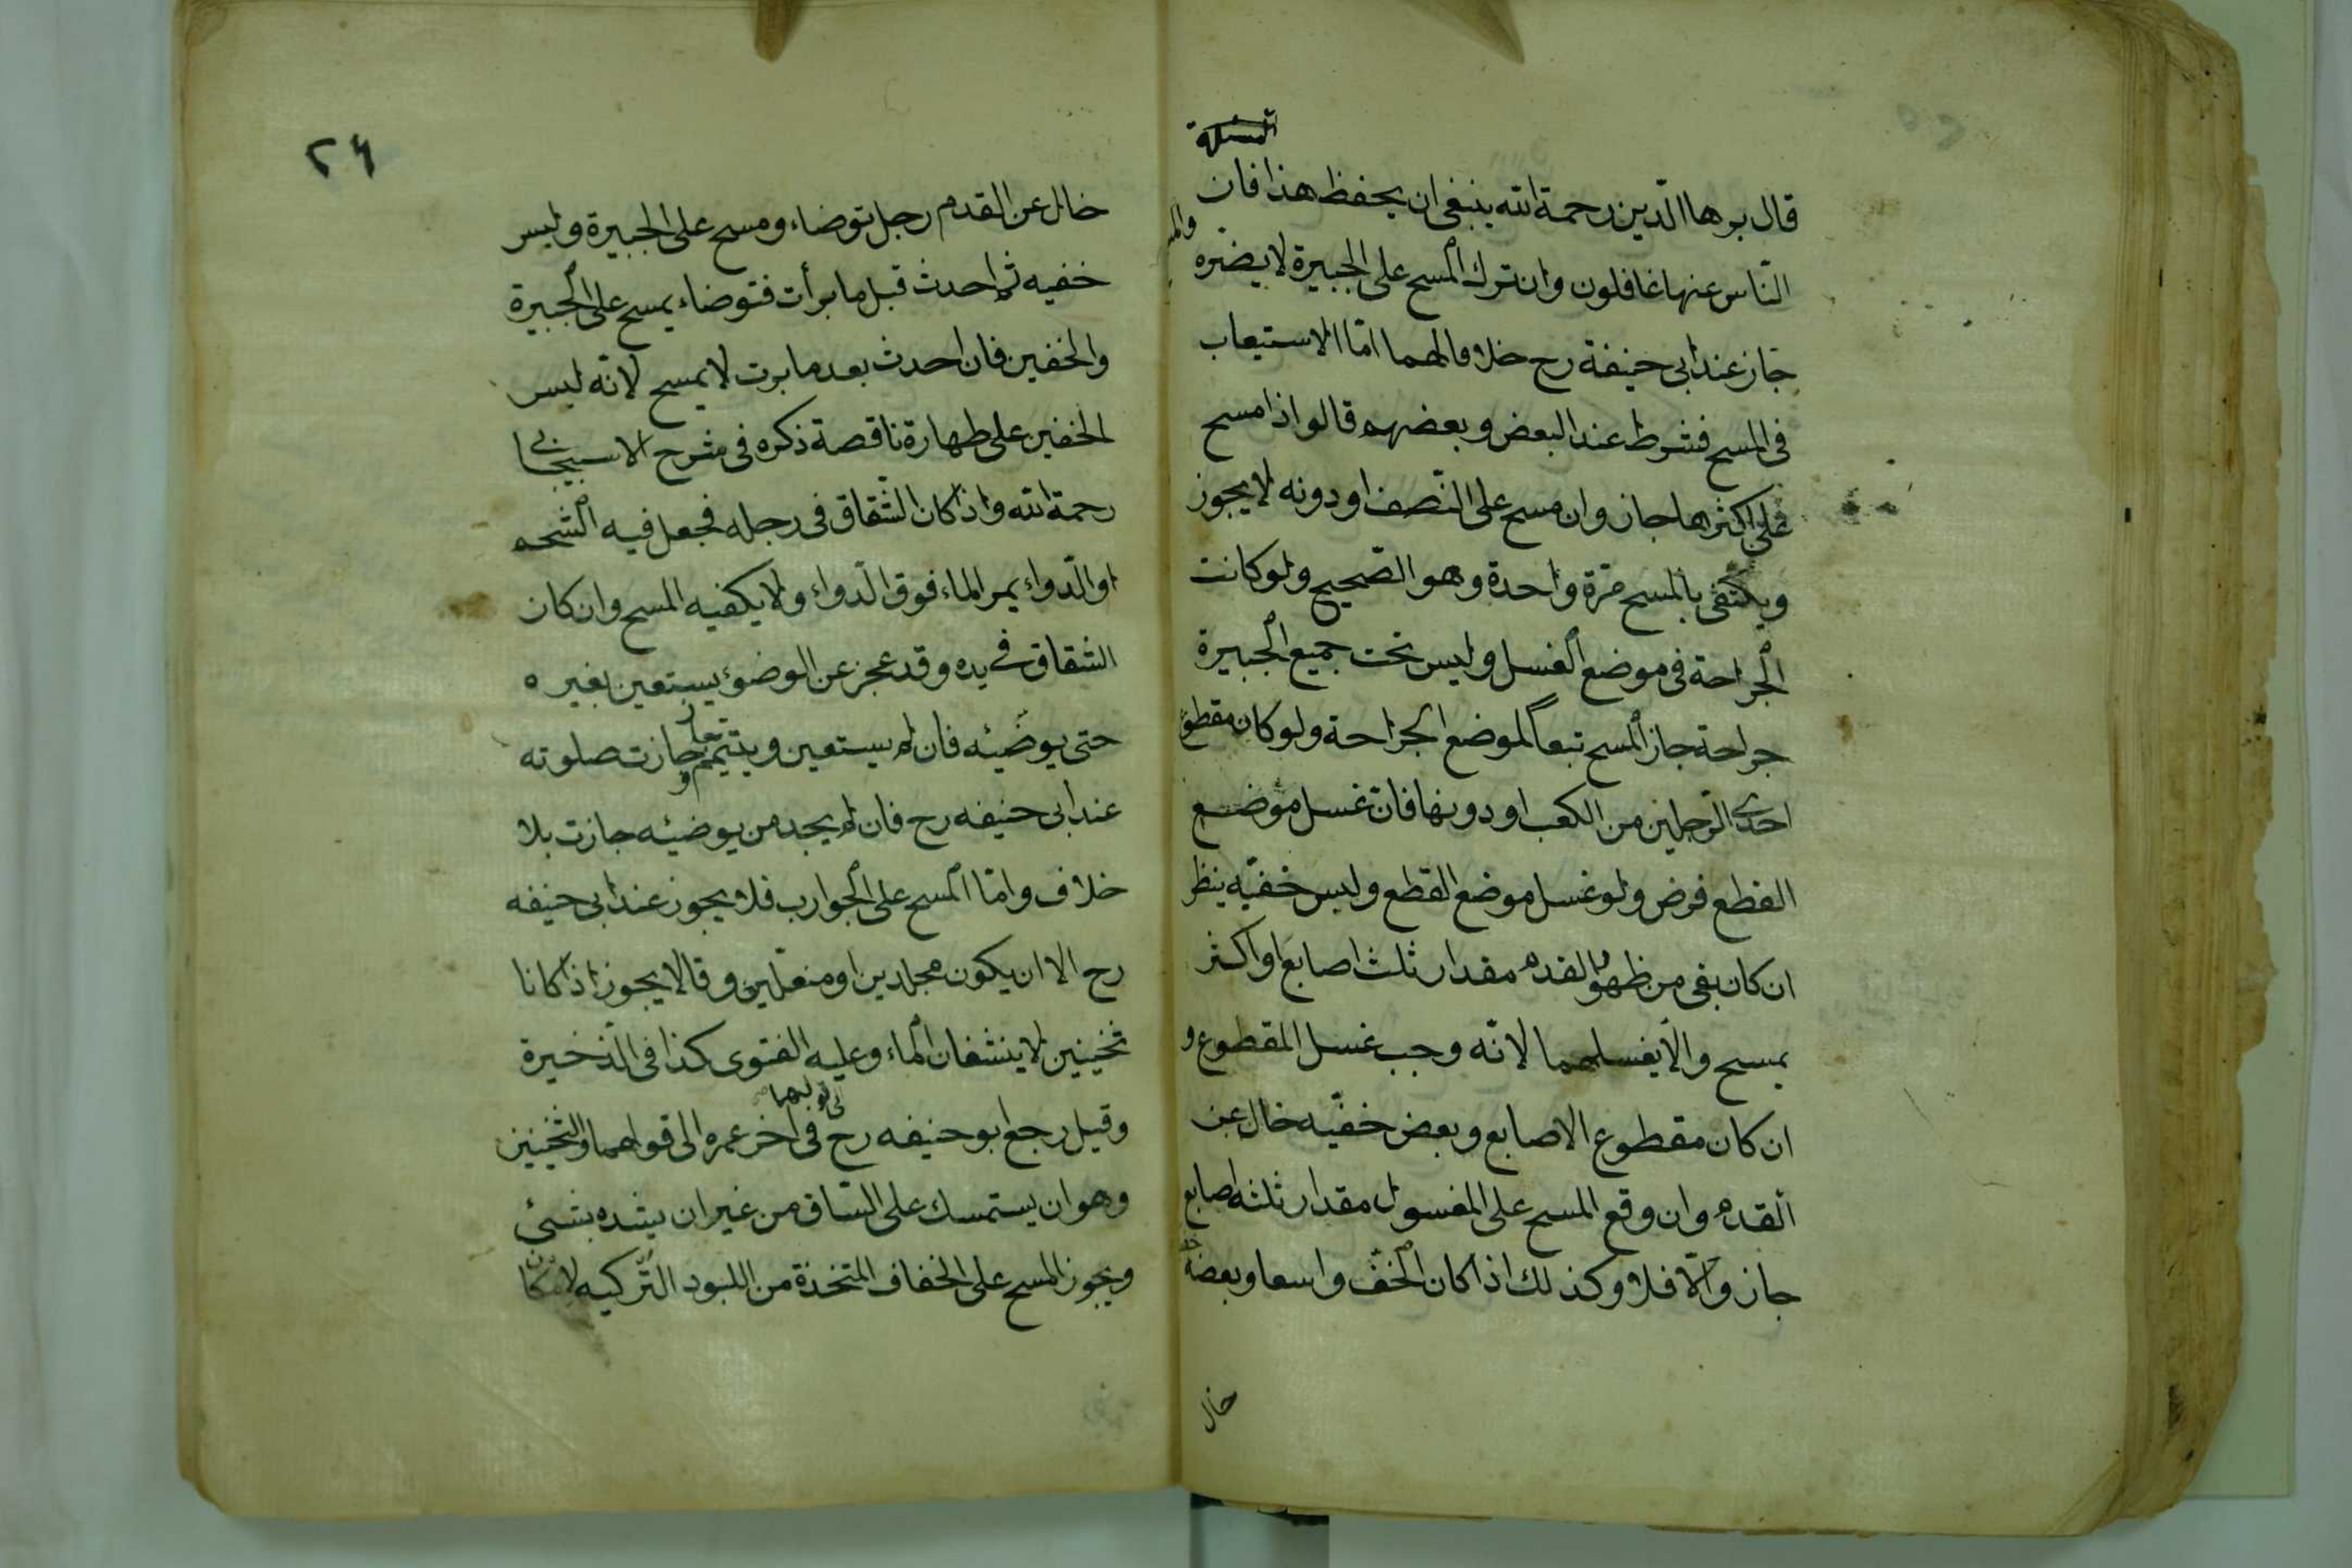 المسئلة
قال برها الدين رحمة الله ينبغي ان يحفظ هذا فان
الناس عنها غافلون وان ترك المسح على الجبيرة لا يضره
جاز عند ابى حنيفة رح خلافا لهما امّا الاستيعاب
فى المسح فشرط عند البعض وبعضهم قالوا اذا مسح
على اكثرها جاز وان مسح على النّصف او دونه لا يجوز
ويكتفى بالمسح مرّة واحدة وهو الصّحيح ولو كانت
الجراحة فى موضع الغسل وليس تحت جميع الجبيرة
جراحة جاز المسح تبعاً لموضع الجراحة ولو كان مقطوع
احدى الرّجلين من الكعب او دونها فان غسل موضع
القطع فرض ولو غسل موضع القطع ولبس خفيّه ينظر
ان كان بقى من ظهر القدم مقدار ثلث اصابع او اكثر
يمسح والّا يغسلهما لانّه وجب غسل المقطوع و
ان كان مقطوع الاصابع وبعض خفّيه خال عن
القدم وان وقع المسح على المغسول مقدار ثلثه اصابع
جاز والّا فلا وكذلك اذا كان الخفّ واسعا وبعضه
خال
٢٦
خال عن القدم رجل توضاء ومسح على الجبيرة ولبس
خفيه ثم احدث قبل ما برأت فتوضاء يمسح على الجبيرة
والخفين فان احدث بعد ما برت لا يمسح لانّه لبس
الخفين على طهارة ناقصة ذكره فى شرح الاسبيجابى
رحمة الله واذا كان الشّقاق فى رجله فجعل فيه الشحم
او الدّواء يمر الماء فوق الدّواء ولا يكفيه المسح وان كان
الشقاق فى يده وقد عجز عن الوضوء يستعين بغيره
حتى يوضّيئه فان لم يستعين ويتيمّم جازت صلوته
عند ابى حنيفه رح فان لم يجد من يوضيئه جازت بلا
خلاف وامّا المسح على الجوارب فلا يجوز عند ابى حنيفه
رح الا ان يكون مجلدين او منعّلين وقالا يجوز اذا كانا
ثخينين لا ينشفان الماء وعليه الفتوى كذا فى الذّخيرة
وقيل رجع ابو حنيفه رح فى آخر عمره الى قولهما والثخينين
وهو ان يستمسك على السّاق من غير ان يشده بشئ
ويجوز المسح على الخفاف المتخذة من اللبود التّركيه لامكان